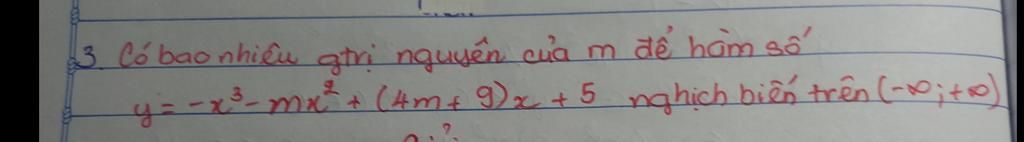 3. Có bao nhiêu gtrị nguyên của m để hàm số
y = -x³ - mx² + (4m + 9)x + 5 nghịch biến trên (-∞; +∞)